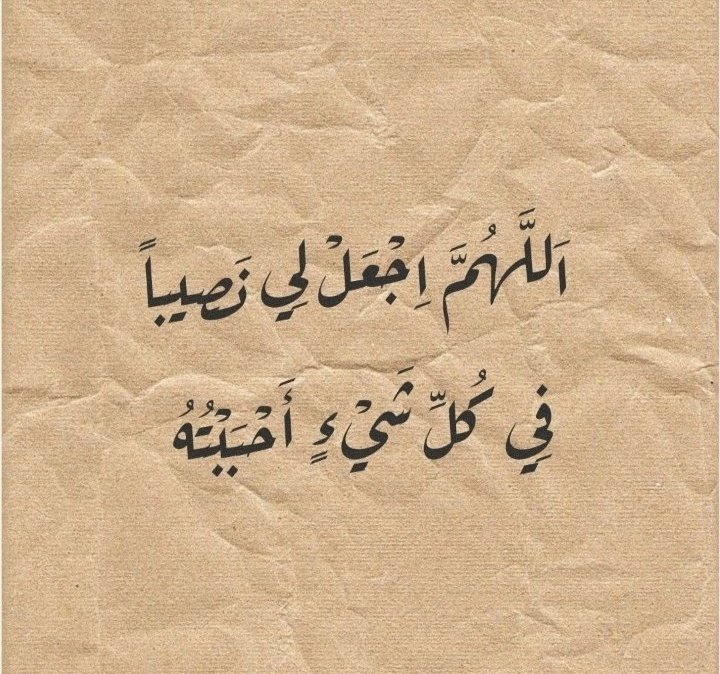 اَللَّهُمَّ اِجْعَلْ لِي نَصِيباً
فِي كُلِّ شَيْءٍ أَحْبَبْتُهُ